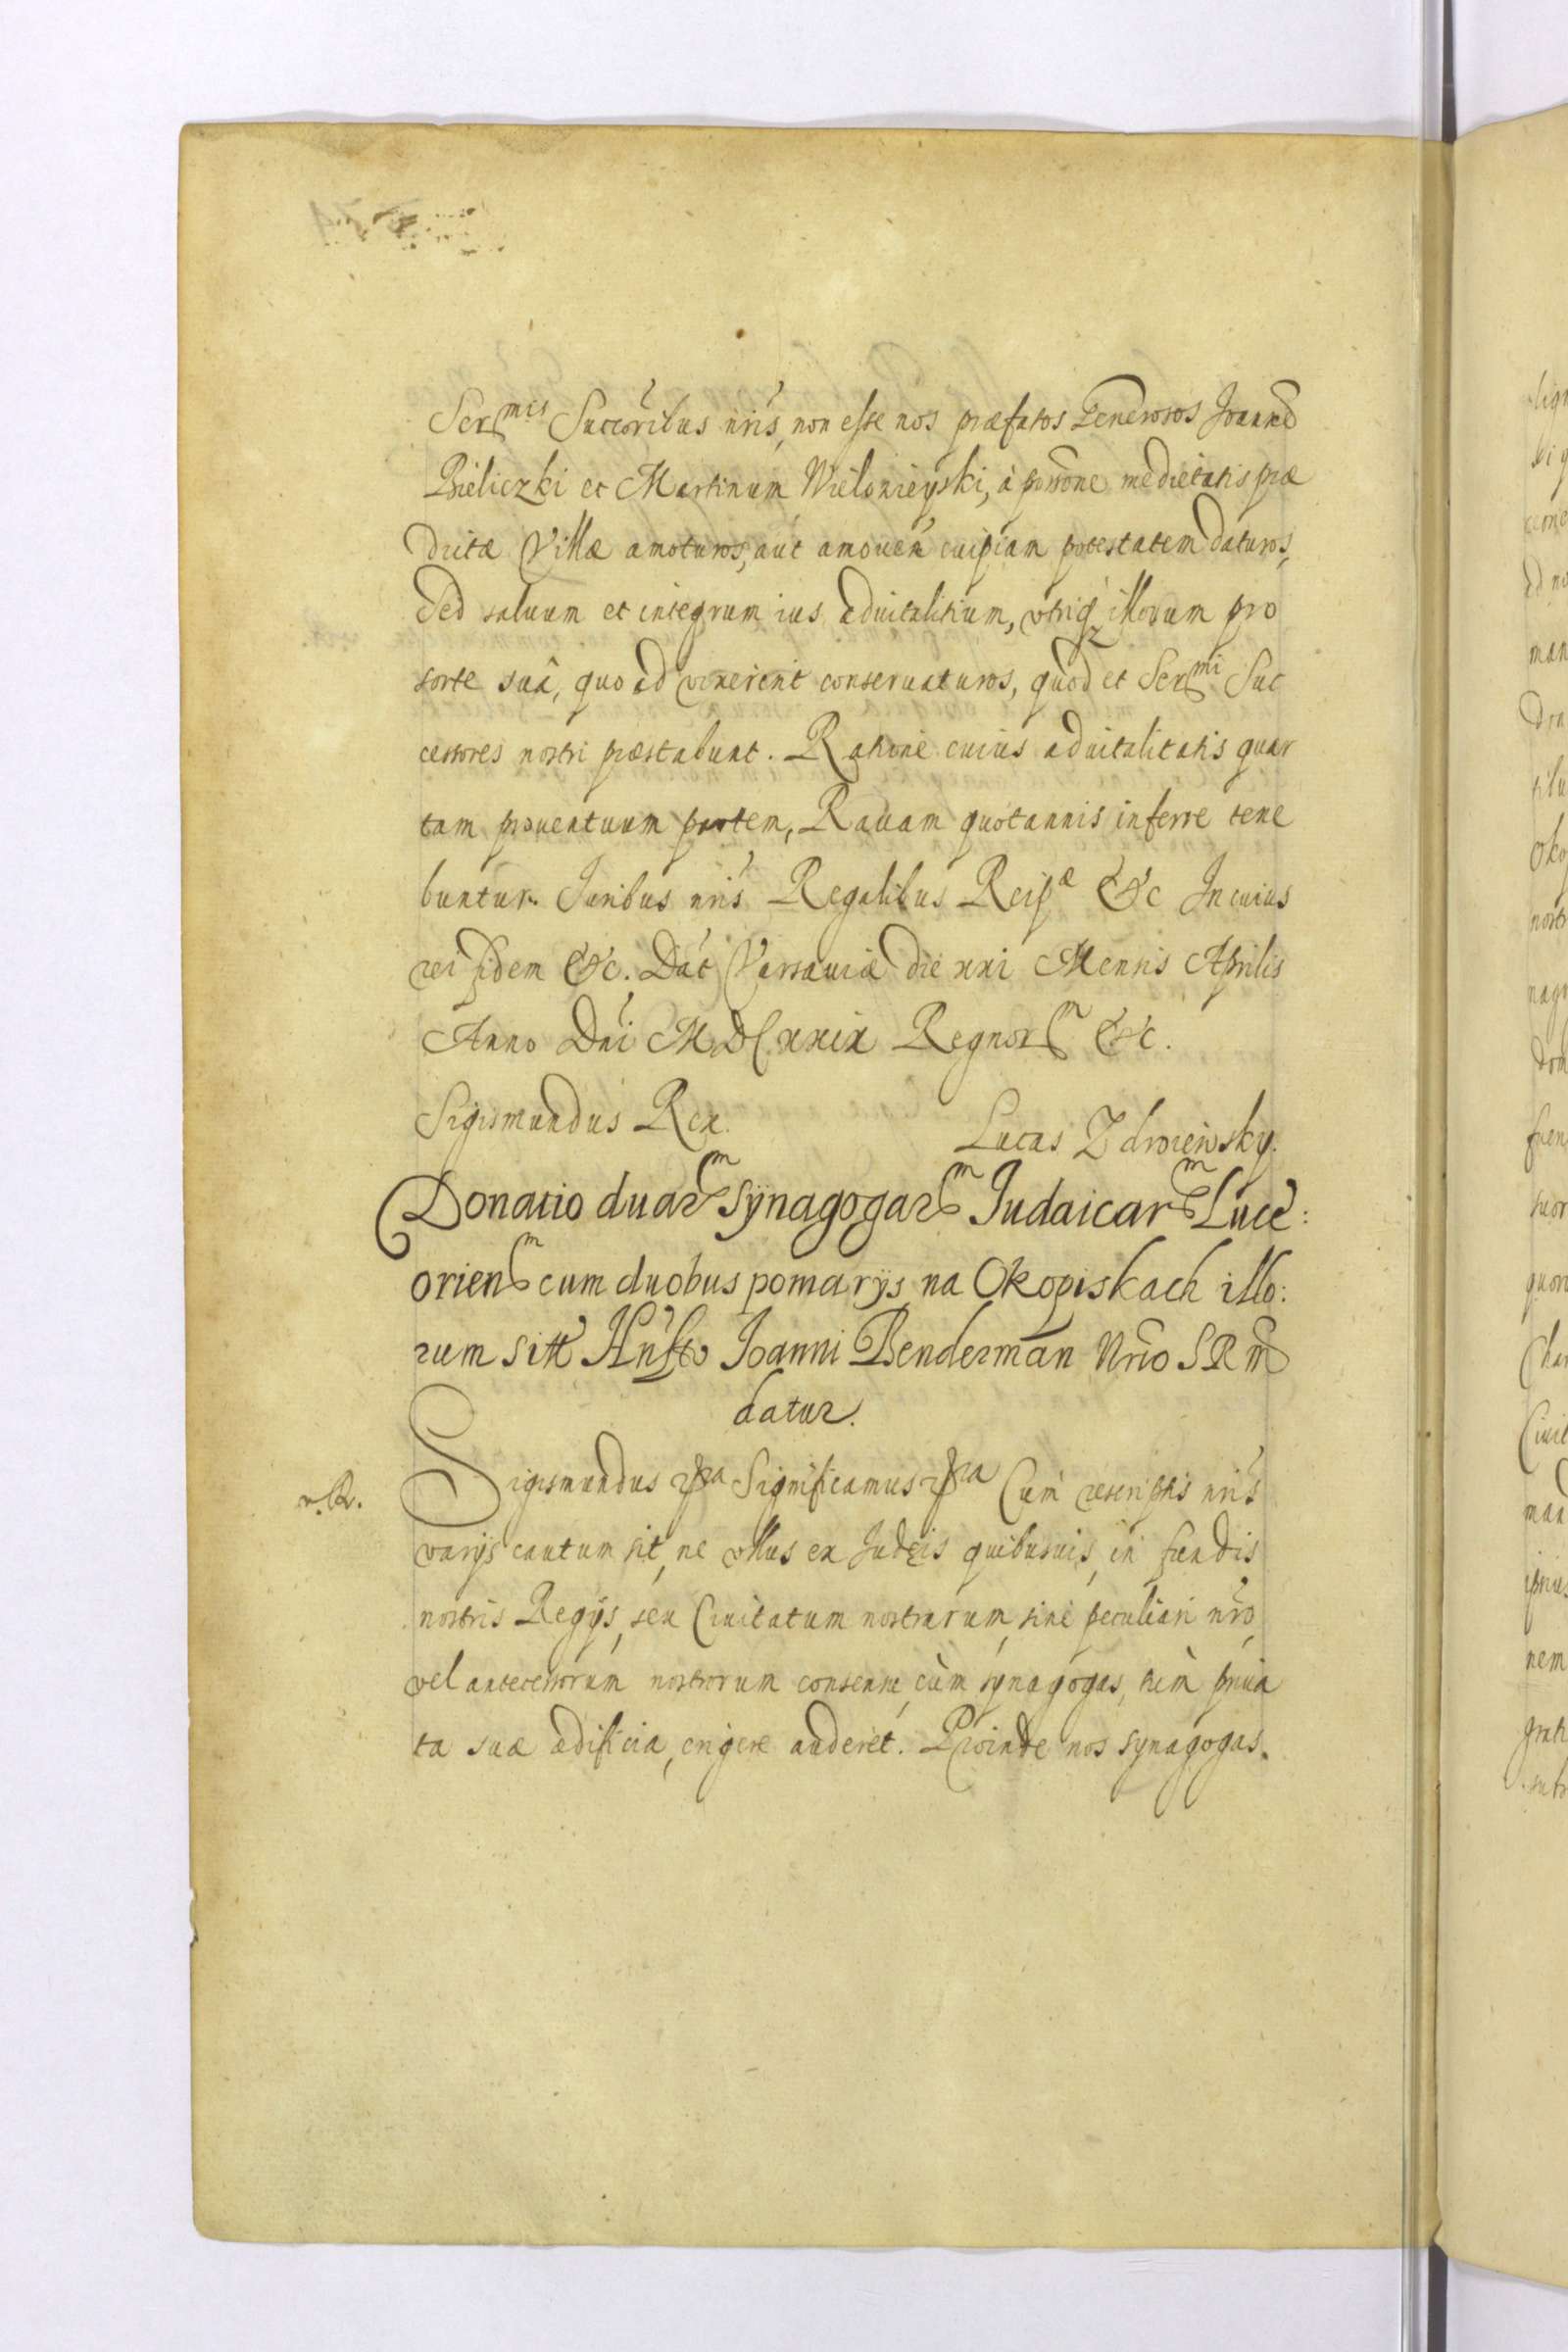 Ser mis Succoribus nris, non esse nos præfatos Generosos Joanne
Bieliczki et Martinum Wielonieyski, à possone medietatis præ
dictæ Villæ amoturos, aut amouen cuipiam potestatem daturos,
Sed saluum et integrum ius aduitalitium, vtriq illorum pro
sorte suâ, quo ad vixerint conseruaturos, quod et Ser mi Suc
cessores nostri præstabunt. Ratione cuius aduitalitatis quar
tam prouentuum partem, Rauam quotannis inferre tene
buntur. Juribus nris Regalibus Reip æ &c In cuius
rei fidem &c. Dat Varsauiæ die xxi Mensis Aprilis
Anno Dni MDCxxix Regnor m &c.
Sigismundus Rex.
Lucas Zdroiewsky.
Donatio duar m synagogar m Judaicar m Luce:
orien m cum duobus pomarijs na Okopiskach illo:
rum sitt Hnsto Joanni Benderman Nrio SRm
datur.
Sigismundus &ra Significamus &ra Cum rescriptis nris
varijs cautum sit, ne vllus ex Judæis quibusuis, in fundis
nostris Regijs, seu Ciuitatum nostrarum, sine peculiari nro,
vel antecessorum nostrorum consensu, cùm synagogas, tùm priua
ta sua ædificia, erigere auderet. Proinde nos synagogas.